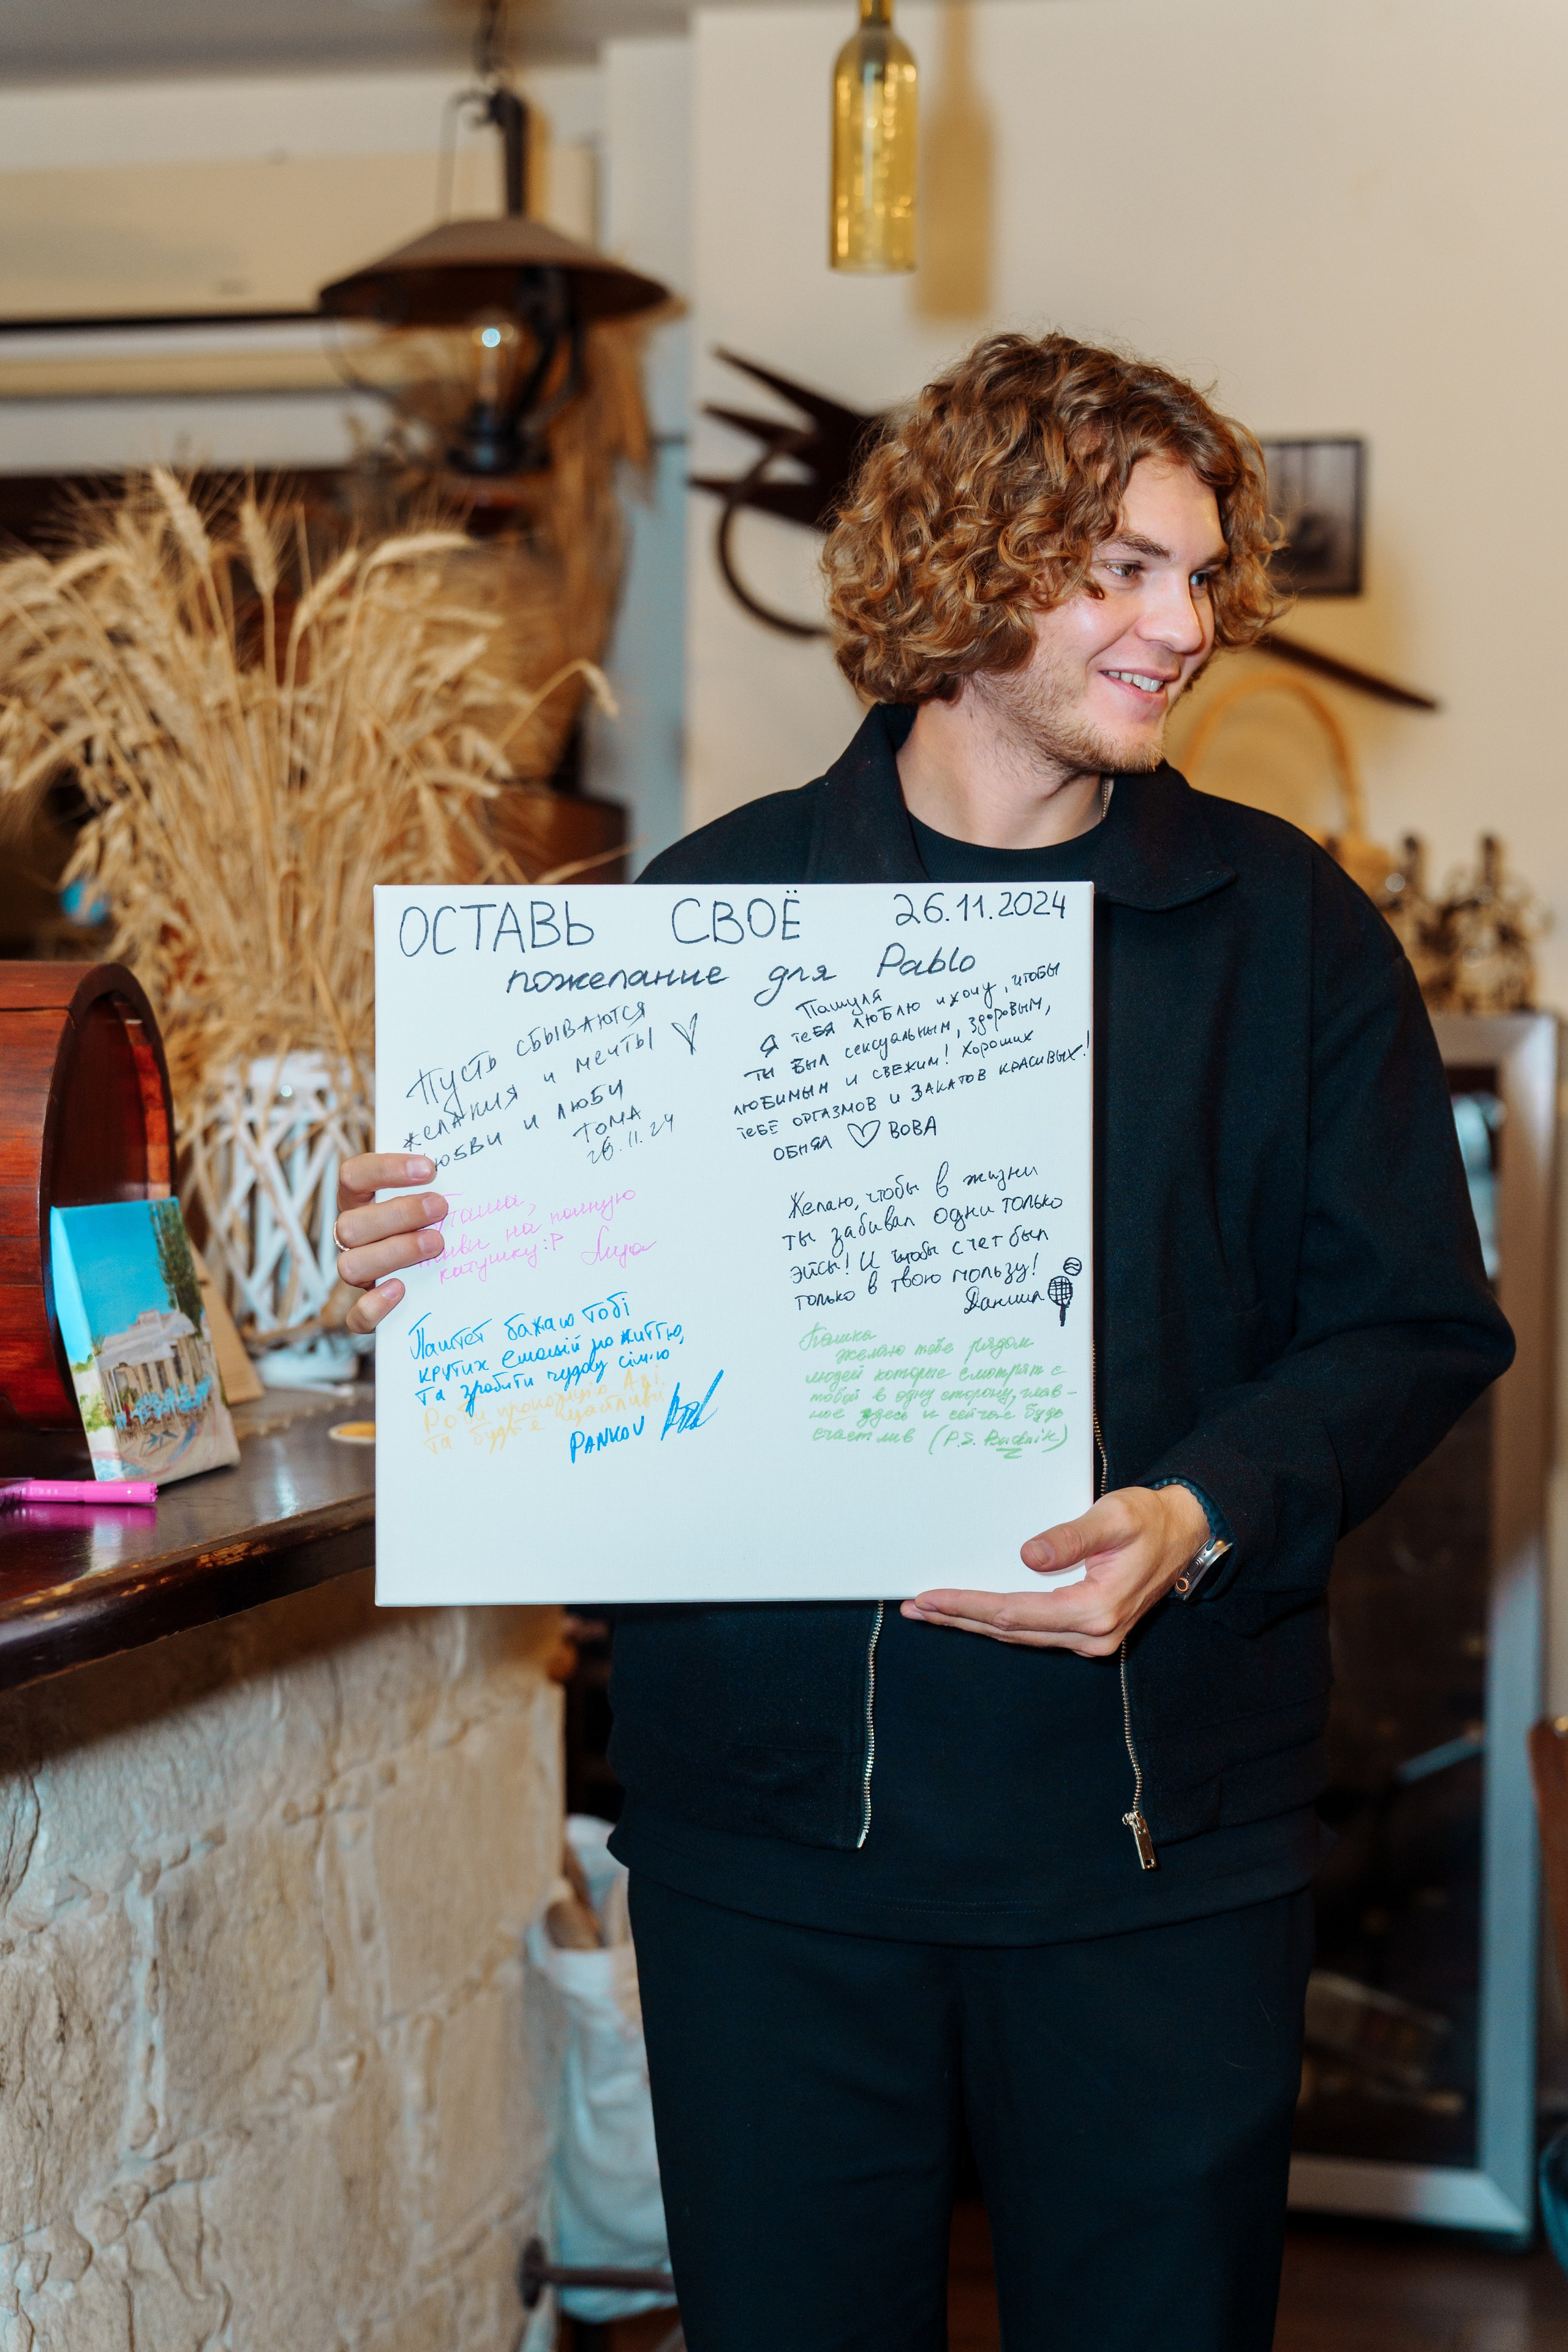 ОСТАВЬ СВОЁ 26.11.2024
пожелание для Pablo
Пусть сбываются
желания и мечты
Любви и люби
Тома
26.11.24
Пашуля
Я тебя люблю и хочу, чтобы
ты был сексуальным, здоровым,
любимым и свежим! Хороших
тебе оргазмов и закатов красивых!
Обнял ♡ Вова
Паша,
живи на полную
катушку :P Лиза
Желаю, чтобы в жизни
ты забивал одни только
эйсы! И чтобы счет был
только в твою пользу!
Данила
Паштет бажаю тобі
крутих емоцій по життю,
та зробити чудову сім'ю
Роби пропозицію Алі
та будьте щасливі
PANKOV
Пашка
желаю тебе рядом
людей которые смотрят с
тобой в одну сторону, глав-
ное здесь и сейчас будь
счастлив (P.S. Budnik)